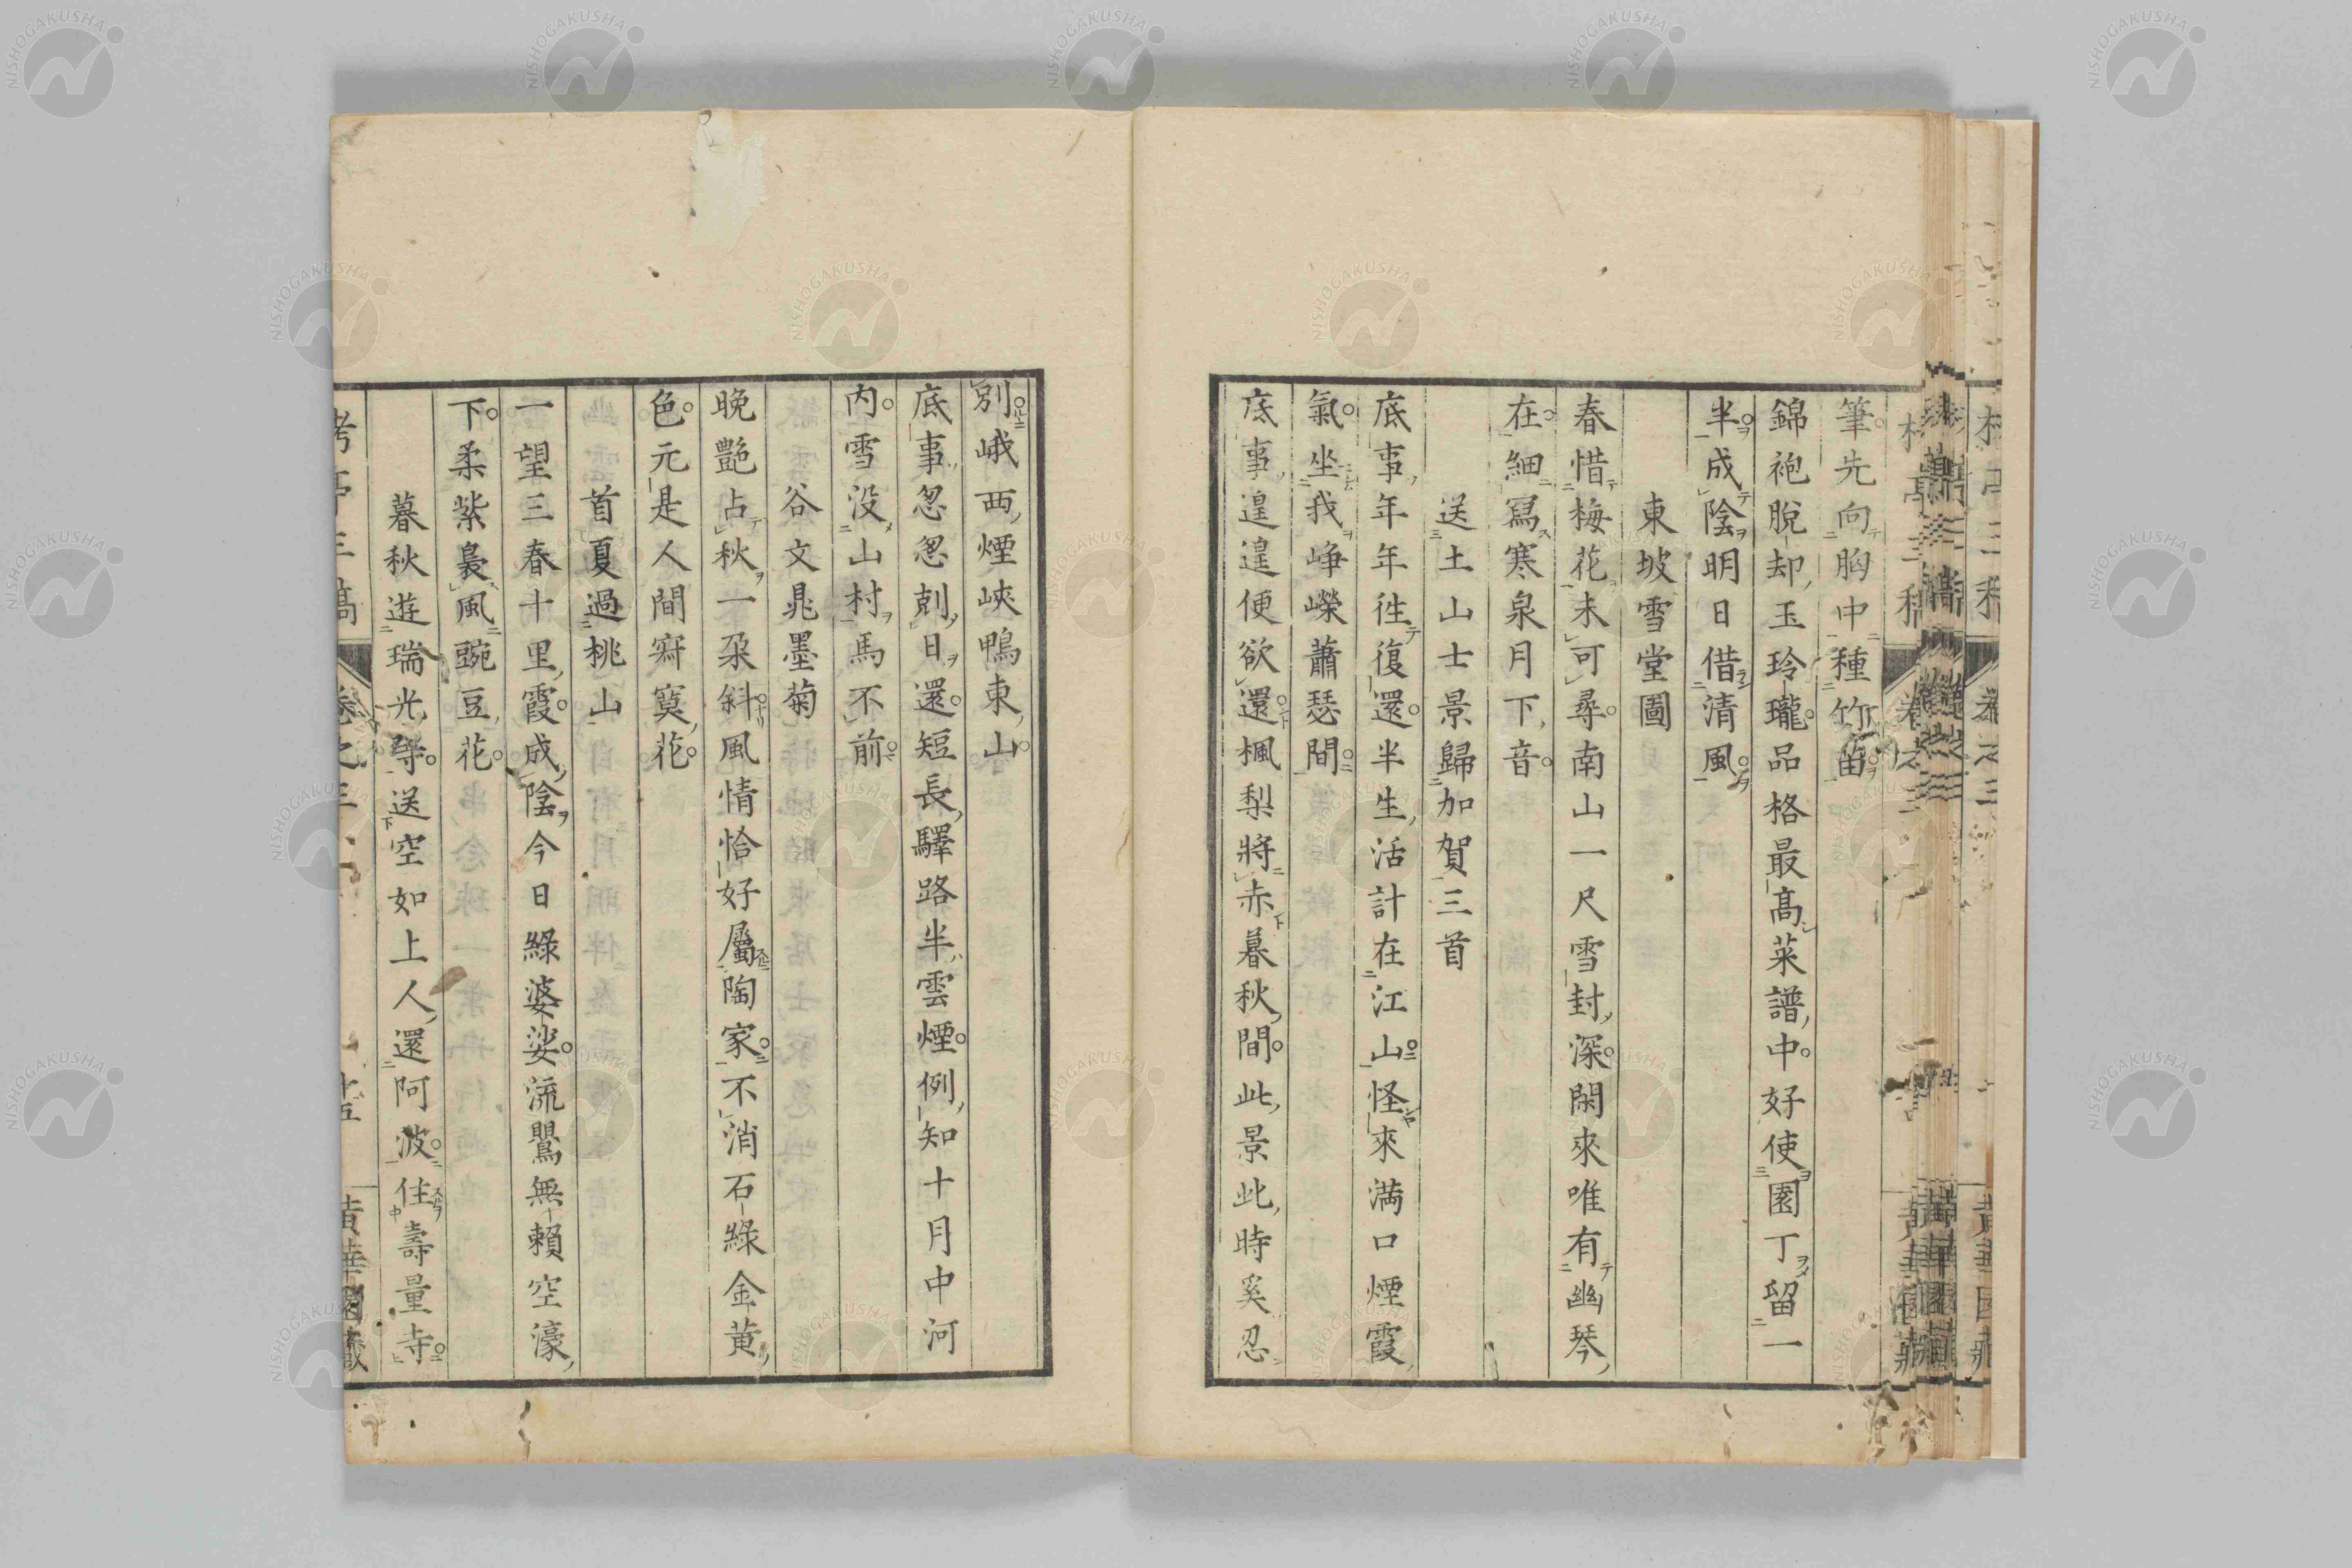 筆先向胸中種竹留
錦袍脱却玉玲瓏品格最高菜譜中好使園丁留一
半成陰明日借清風
東坡雪堂圖
春惜梅花未可尋南山一尺雪封深閑來唯有幽琴
在細寫寒泉月下音
送土山士景歸加賀三首
底事年年往復還半生活計在江山怪來滿口煙霞
氣坐我崢嶸蕭瑟間
底事遑遑便欲還楓梨將赤暮秋間此景此時奚忍
別峨西煙峽鴨東山
底事怱怱剋日還短長驛路半雲煙例知十月中河
内雪没山村馬不前
谷文晁墨菊
晚艷占秋一朶斜風情恰好屬陶家不消石綠金黄
色元是人間寂寞花
首夏過桃山
一望三春十里霞成陰今日綠婆娑流鶯無賴空濠
下柔紫裊風豌豆花
暮秋遊瑞光寺送空如上人還阿波住壽量寺
卷之三
NISHOGAKUSHA